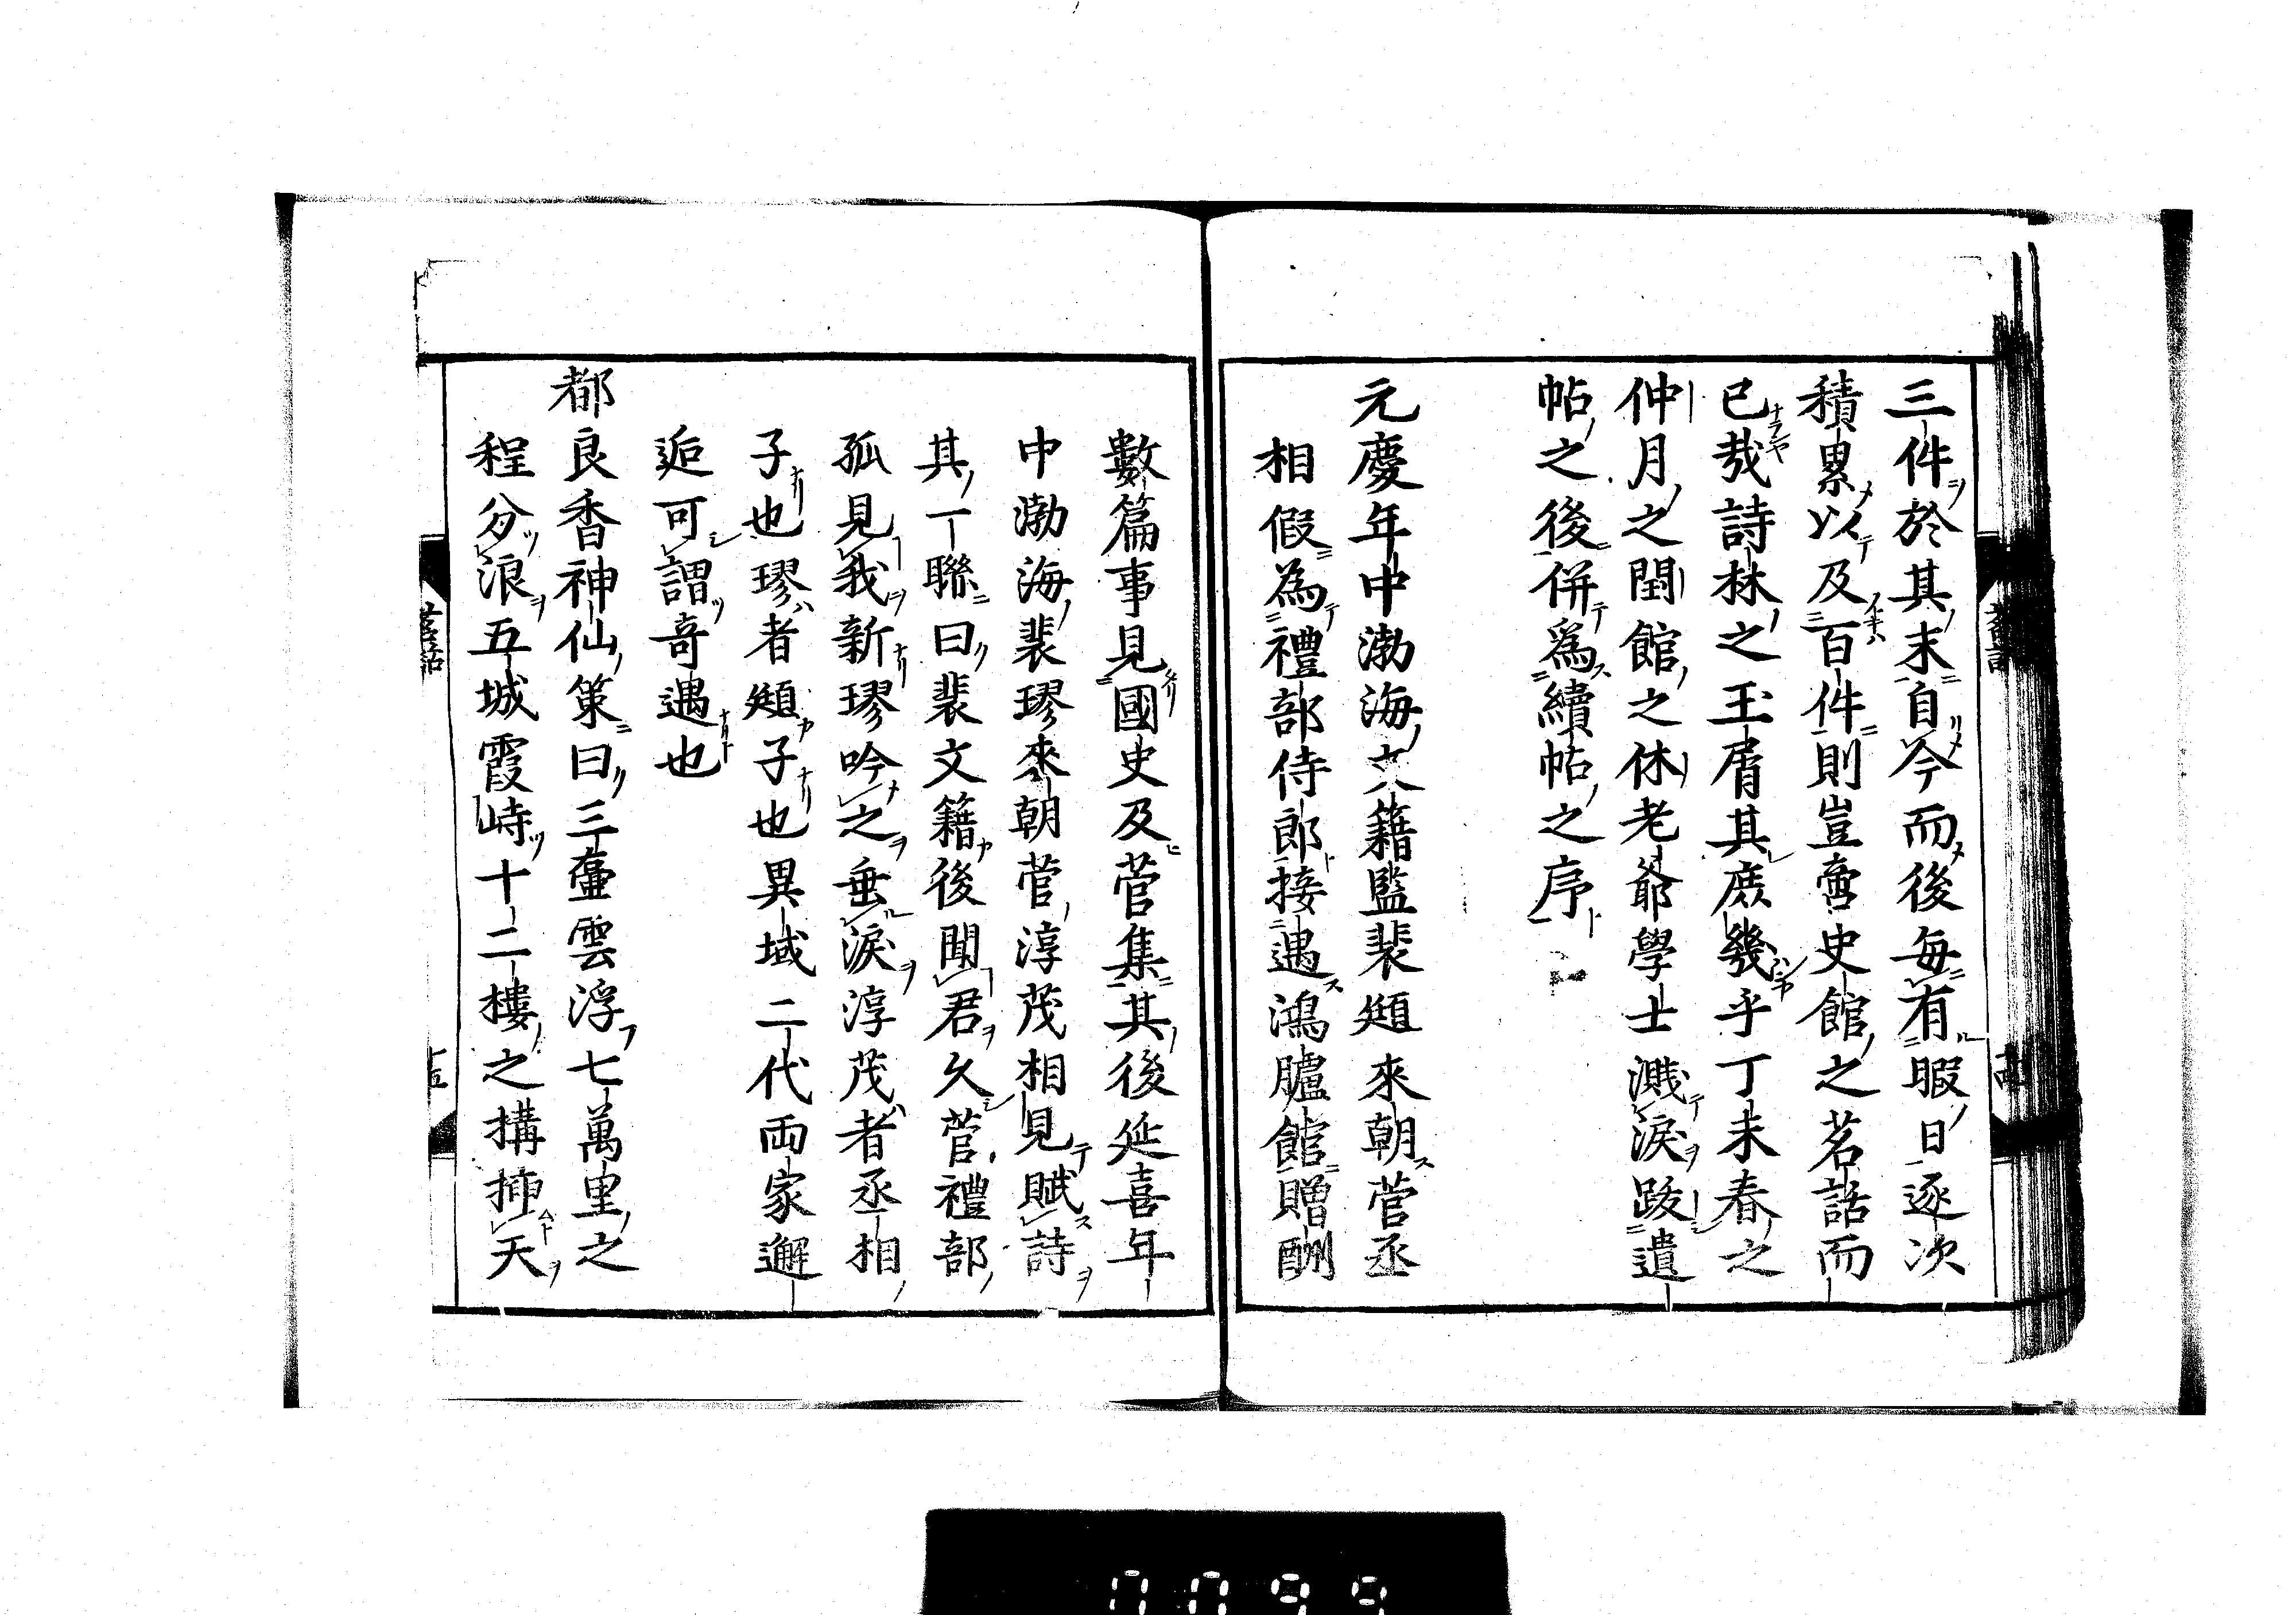 三件於其末自今而後每有暇日逐次
積累以及百件則豈啻史館之茗話而
已哉詩林之玉屑其庶幾乎丁未春之
仲月之閏館之休老爺學士濺淚跋遺
帖之後併爲續帖之序
元慶年中渤海文籍監裴頲來朝菅丞
相假為禮部侍郎接遇鴻臚館贈酬
數篇事見國史及菅集其後延喜年
中渤海裴璆來朝菅淳茂相見賦詩
其一聯曰裴文籍後聞君久菅禮部
孤見我新璆吟之垂淚淳茂者丞相
子也璆者頲子也異域二代両家邂
逅可謂奇遇也
都良香神仙策曰三壷雲浮七萬里之
程分浪五城霞峙十二樓之搆挿天
茗話
十五
0099